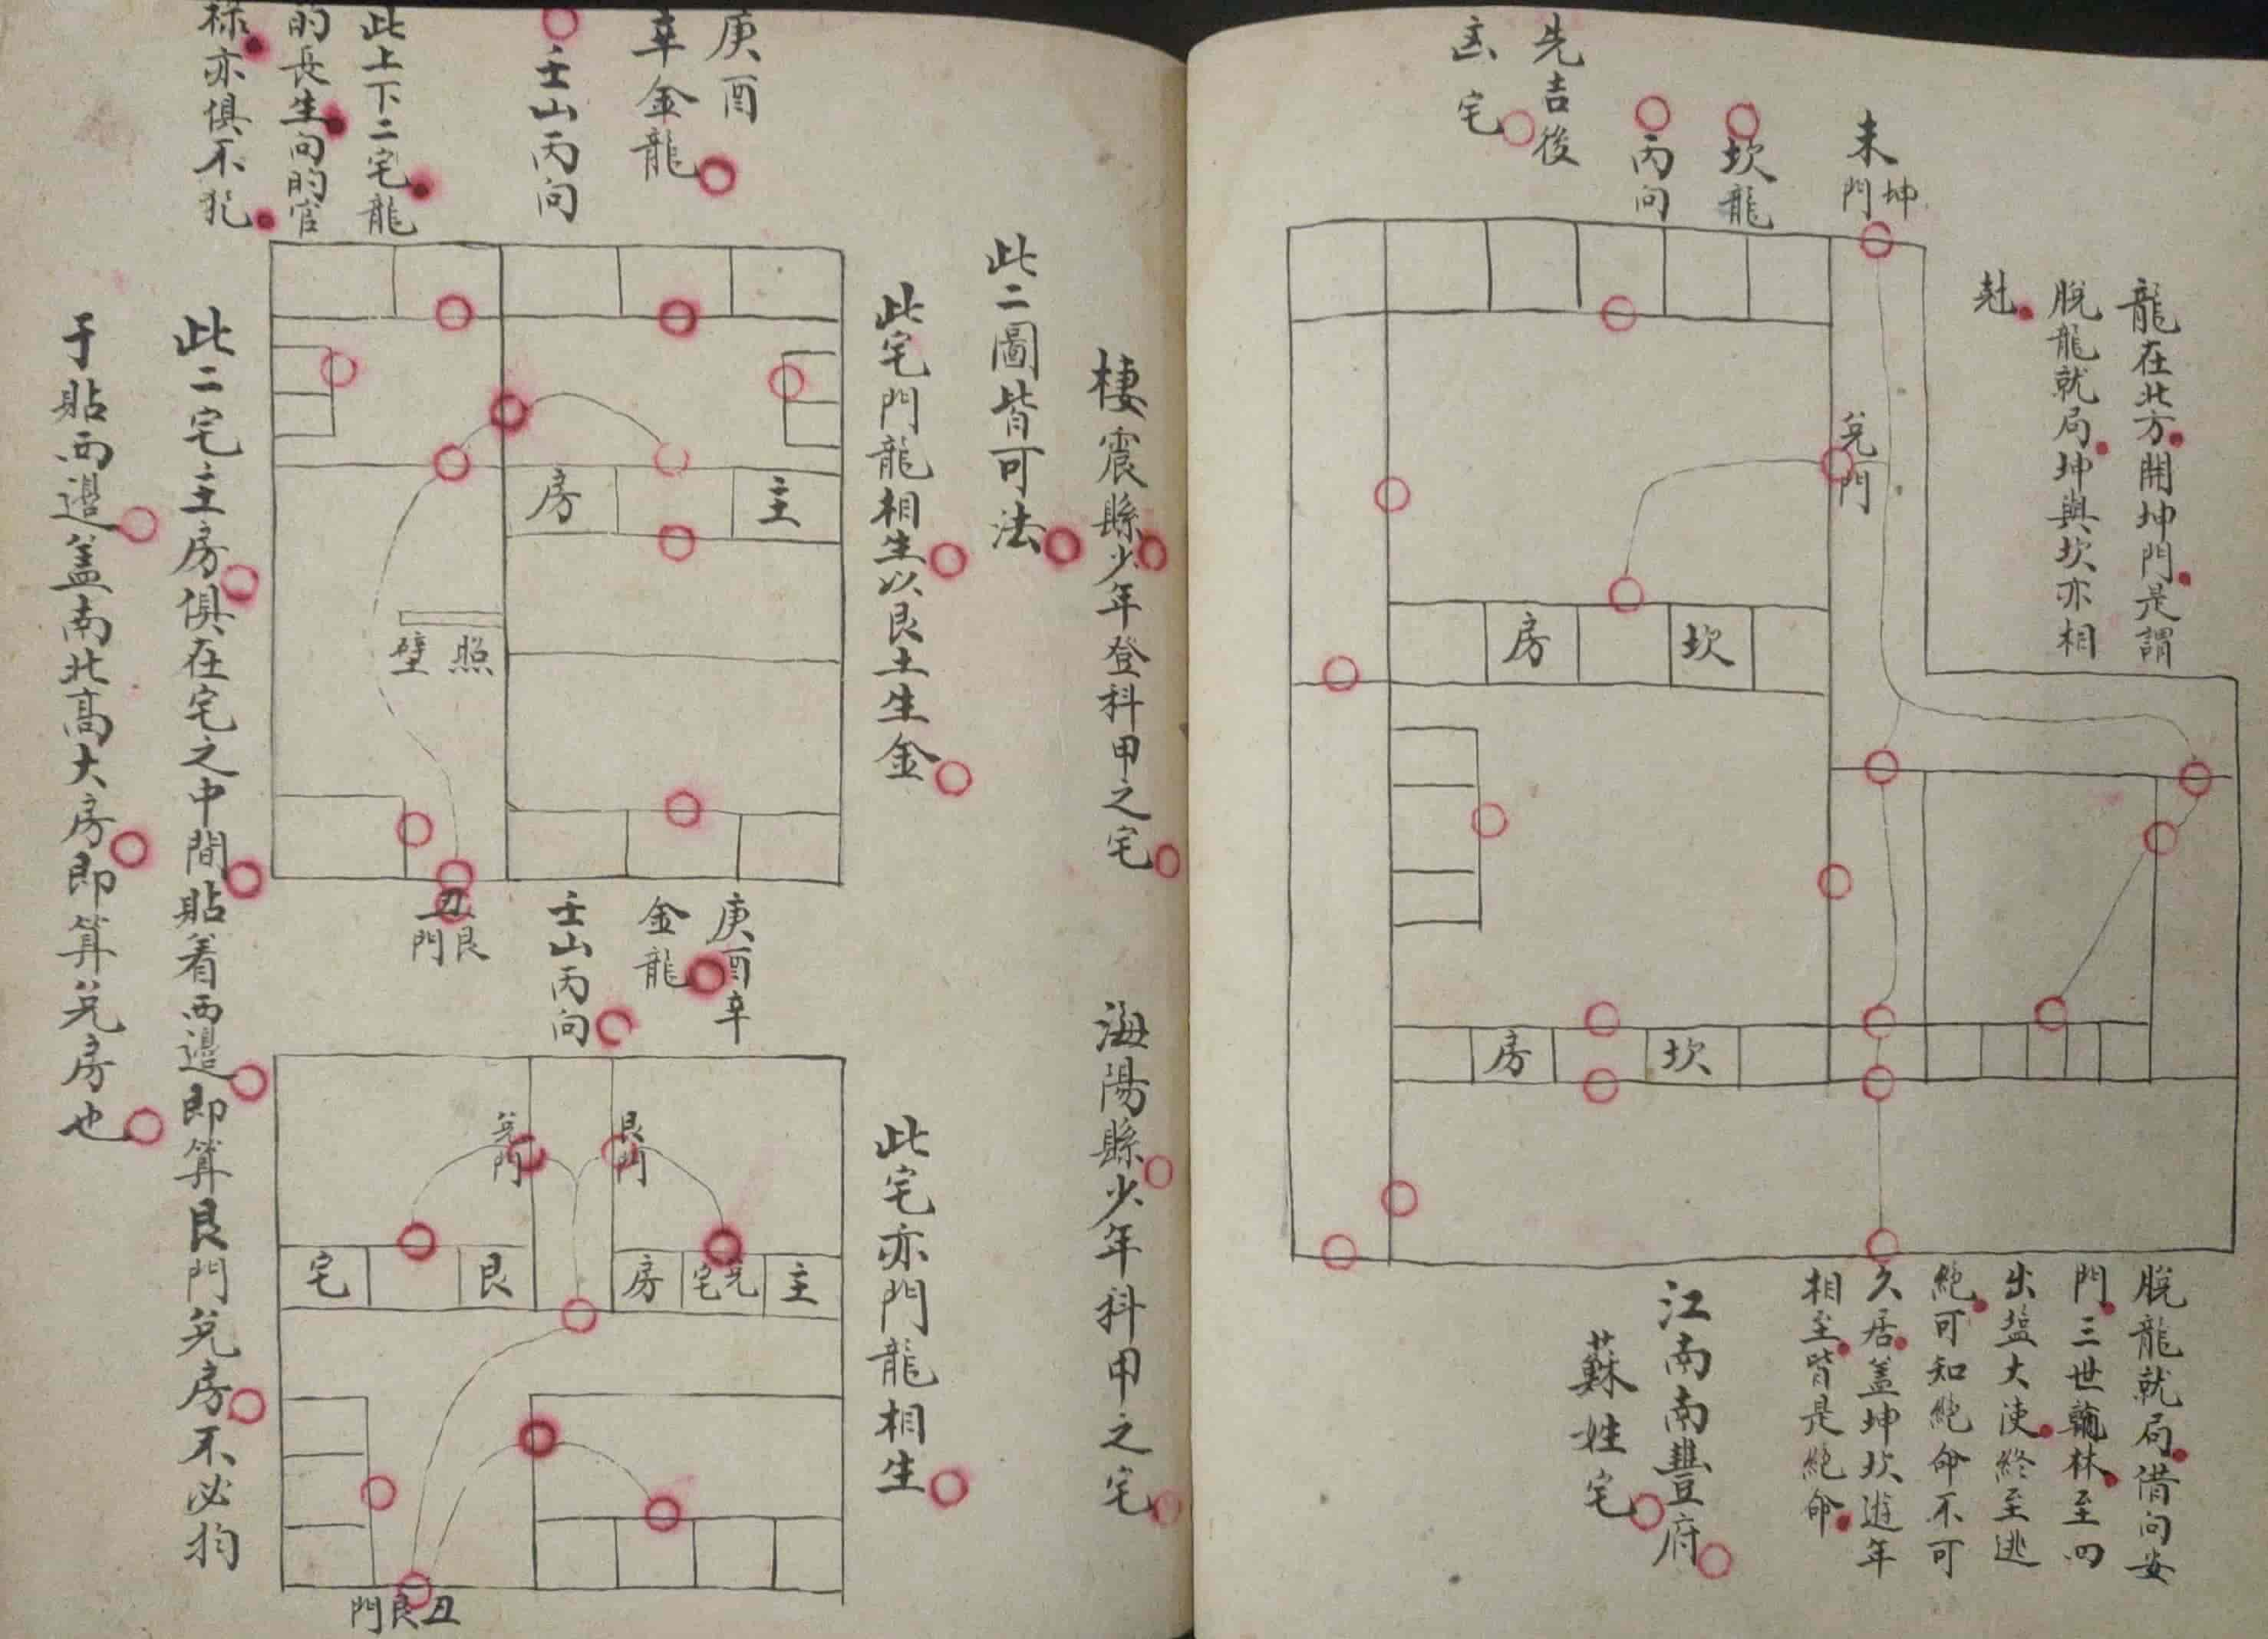 龍在北方開坤門是謂
脫龍就局坤與坎亦相
尅
未坤門
坎龍
丙向
先吉後
凶宅
兌門
房 坎
房 坎
脫龍就局借向安
門三世翰林至四
出塩大使終至逃
絶可知絶命不可
久居蓋坤坎逰年
相至皆是絶命
江南南豐府
蘇姓宅
棲霞縣少年登科甲之宅
海陽縣少年科甲之宅
此二圖皆可法
此宅門龍相生以艮土生金
此宅亦門龍相生
庚酉
辛金龍
壬山丙向
此上下二宅龍
的長生向的官
祿亦俱不犯
房 主
照壁
丑艮門
庚酉辛
金龍
壬山丙向
兌門
艮門
宅 艮
房 兌宅 主
丑艮門
此二宅主房俱在宅之中間貼着西邉即算艮門兌房不必拘
于貼西邉盖南北高大房即算兌房也